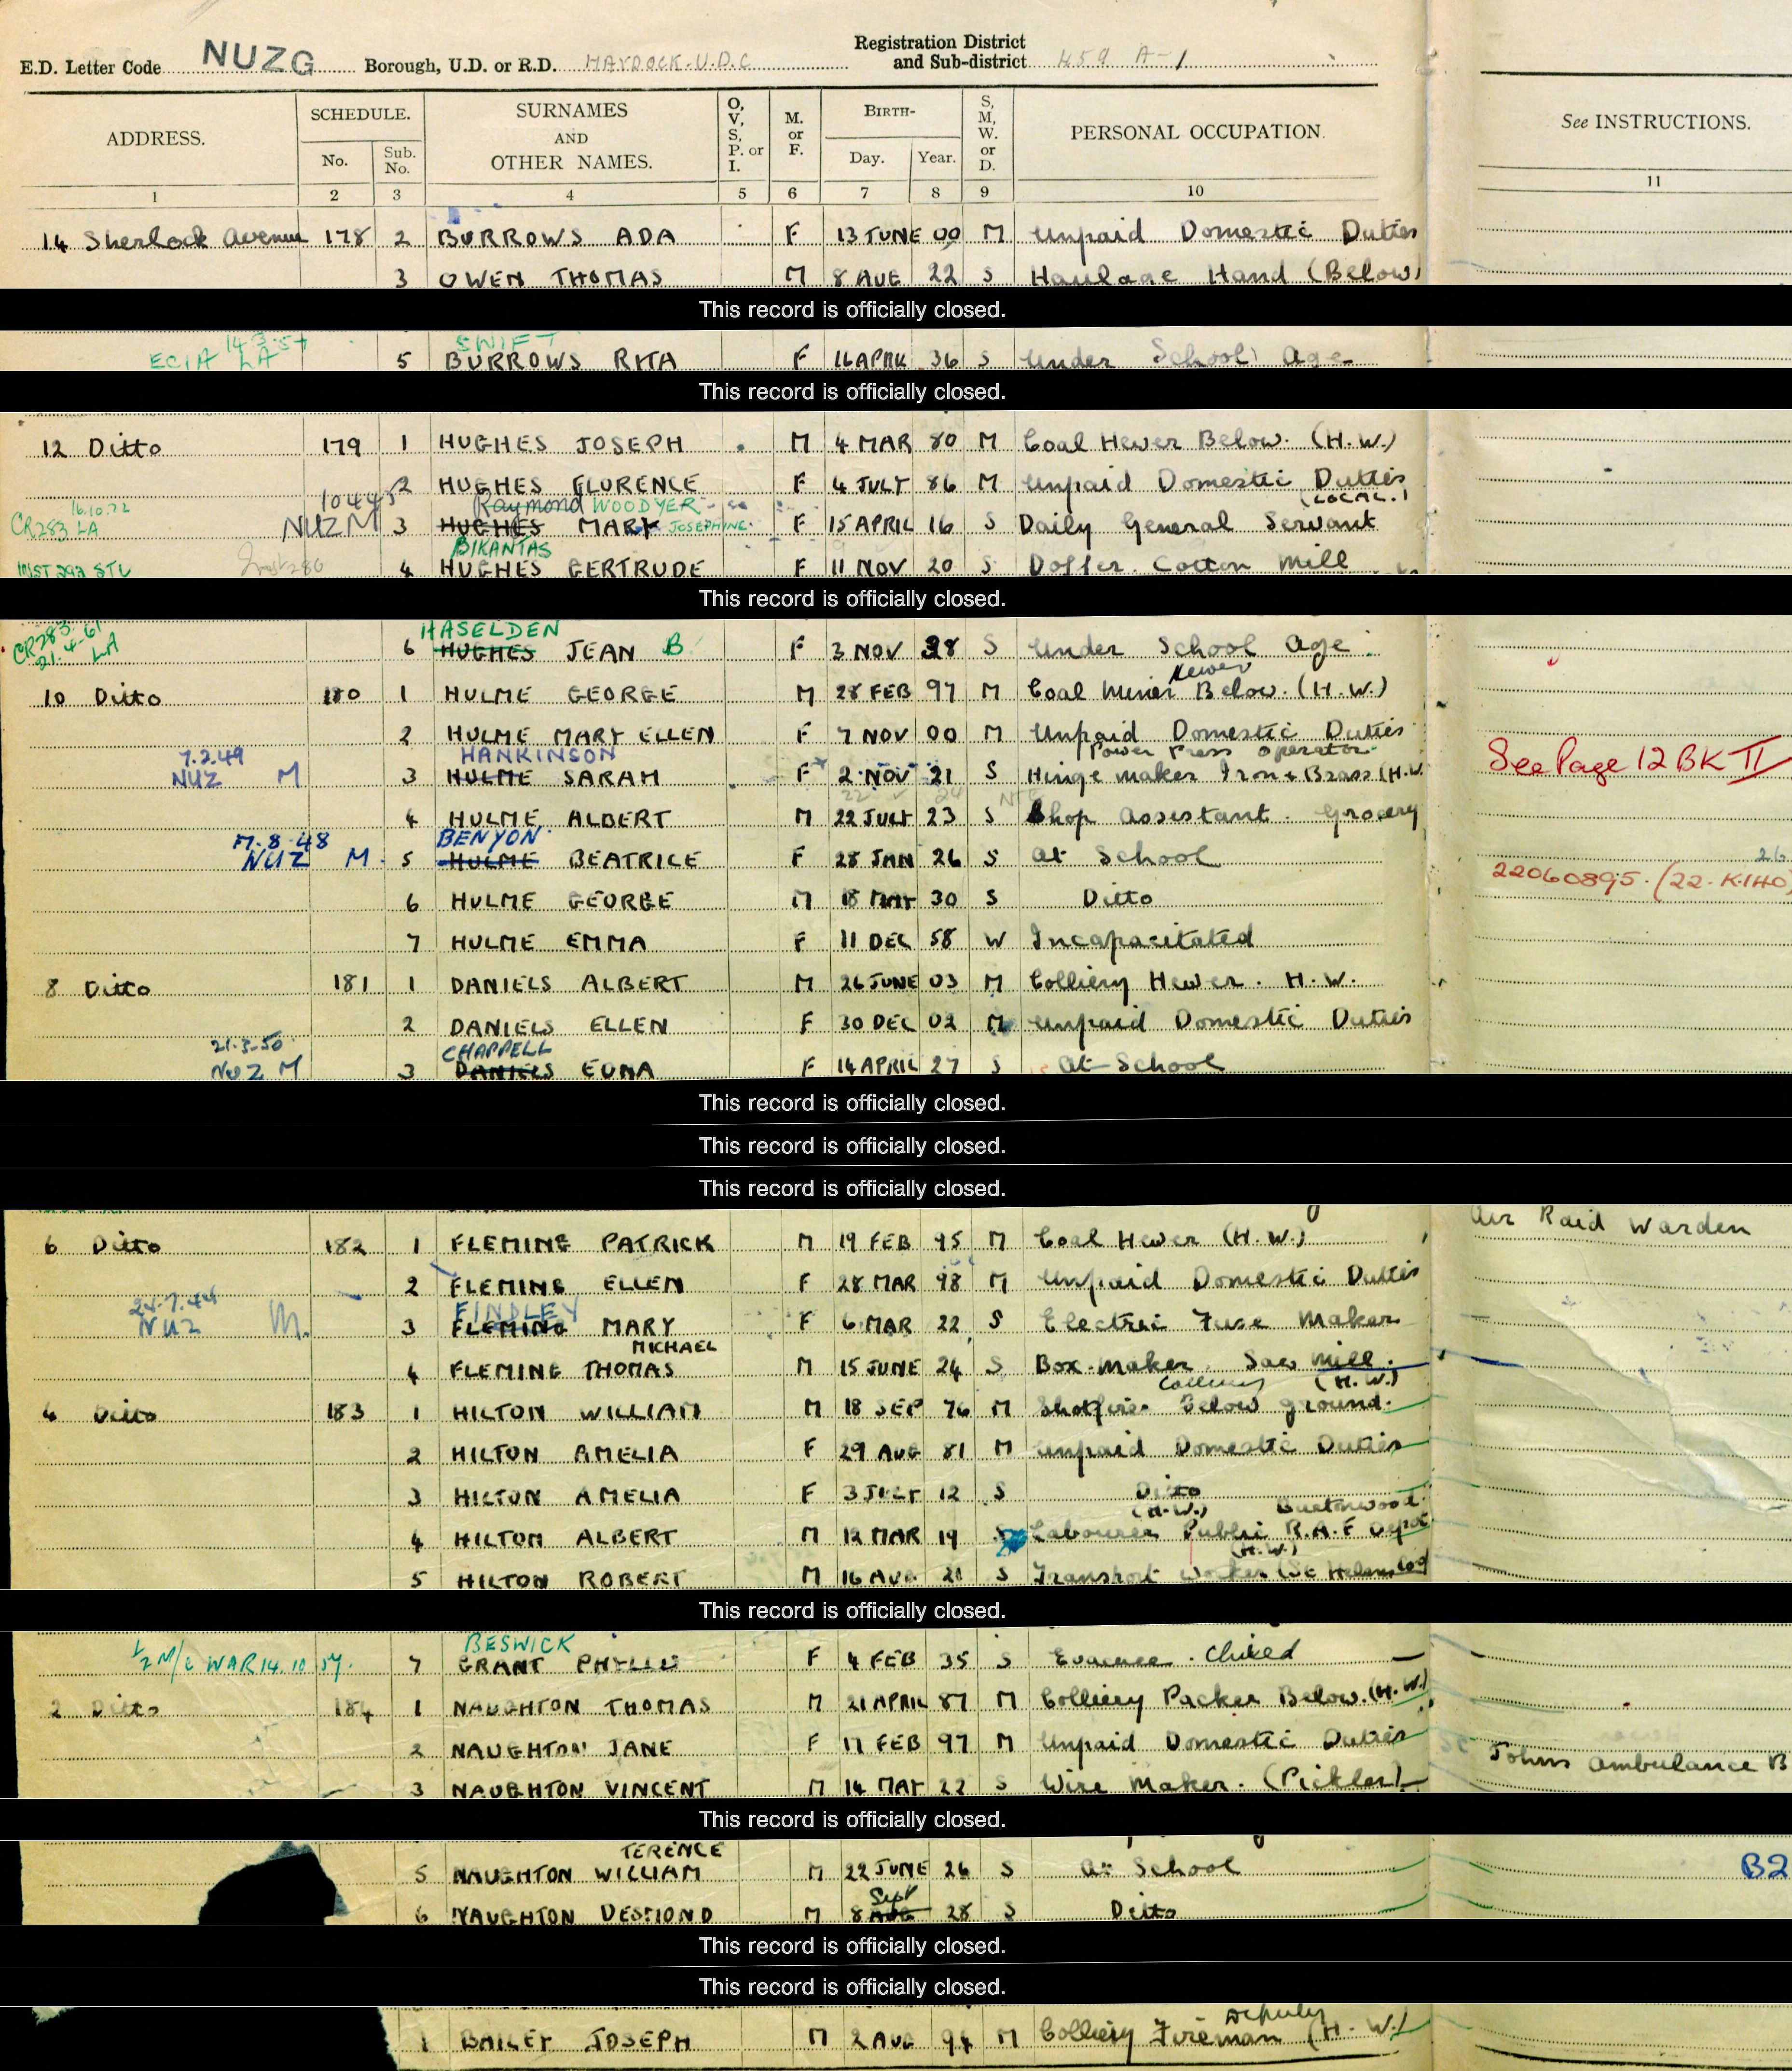 E.D. Letter Code NUZG Borough, U.D. or R.D. HAYDOCK. U.D.C Registration District and Sub-district 459 A-1
ADDRESS. SCHEDULE. No. Sub. No. SURNAMES AND OTHER NAMES. O, V, S, P. or I. M. or F. BIRTH- Day. Year. S, M, W. or D. PERSONAL OCCUPATION. See INSTRUCTIONS.
1 2 3 4 5 6 7 8 9 10 11
14 Sherlock Avenue 178 2 BURROWS ADA F 13 JUNE 00 M Unpaid Domestic Duties
3 OWEN THOMAS M 8 AUG 22 S Haulage Hand (Below)
This record is officially closed.
14-3-57 SWIFT
ECIA LA 5 BURROWS RITA F 16 APRIL 36 S Under School Age
This record is officially closed.
12 Ditto 179 1 HUGHES JOSEPH M 4 MAR 80 M Coal Hewer Below. (H.W.)
2 HUGHES FLORENCE F 4 JULY 86 M Unpaid Domestic Duties
16.10.72 Raymond WOODYER (LOCAL.)
CR283 LA NUZM 3 HUGHES MARY JOSEPHINE F 15 APRIL 16 S Daily General Servant
BIKANTAS
4 HUGHES GERTRUDE F 11 NOV 20 S Doffer. Cotton Mill
This record is officially closed.
HASELDEN
CR283 21-4-61 LA 6 HUGHES JEAN B F 3 NOV 38 S Under School Age
Hewer
10 Ditto 180 1 HULME GEORGE M 28 FEB 97 M Coal Miner Below. (H.W.)
2 HULME MARY ELLEN F 7 NOV 00 M Unpaid Domestic Duties
7.2.49 HANKINSON Power Press operator
NUZ M 3 HULME SARAH F 2 NOV 21 S Hinge Maker Iron & Brass (H.W. See Page 12 BK II
4 HULME ALBERT M 22 JULY 23 S Shop Assistant. Grocery
17-8-48 BENYON
NUZ M. 5 HULME BEATRICE F 28 JAN 26 S At School 26
22060895. (22-K.140)
6 HULME GEORGE M 18 MAY 30 S Ditto
7 HULME EMMA F 11 DEC 58 W Incapacitated
8 Ditto 181 1 DANIELS ALBERT M 26 JUNE 03 M Colliery Hewer. H.W.
2 DANIELS ELLEN F 30 DEC 02 M Unpaid Domestic Duties
21-3-50 CHAPPELL
NUZ M 3 DANIELS EDNA F 14 APRIL 27 S At School
This record is officially closed.
This record is officially closed.
This record is officially closed.
Air Raid Warden
6 Ditto 182 1 FLEMING PATRICK M 19 FEB 95 M Coal Hewer (H.W.)
2 FLEMING ELLEN F 28 MAR 98 M Unpaid Domestic Duties
24.7.44 FINDLEY
NUZ M. 3 FLEMING MARY F 6 MAR 22 S Electric Fuse Maker
MICHAEL
4 FLEMING THOMAS M 15 JUNE 24 S Box-Maker. Saw Mill.
Colliery (H.W.)
4 Ditto 183 1 HILTON WILLIAM M 18 SEP 76 M Shotfirer Below ground.
2 HILTON AMELIA F 29 AUG 81 M Unpaid Domestic Duties
3 HILTON AMELIA F 3 JULY 12 S Ditto
(H.W.) Burtonwood
4 HILTON ALBERT M 12 MAR 19 S Labourer Public R.A.F Depot
(H.W.)
5 HILTON ROBERT M 16 AUG 21 S Transport Worker (St Helens
This record is officially closed.
BESWICK
M/c WAR 14.10 57. 7 GRANT PHYLLIS F 4 FEB 35 S Evacuee. Child
2 Ditto 184 1 NAUGHTON THOMAS M 21 APRIL 87 M Colliery Packer Below. (H.W.)
2 NAUGHTON JANE F 17 FEB 97 M Unpaid Domestic Duties
Johns Ambulance B
3 NAUGHTON VINCENT M 14 MAY 22 S Wire Maker. (Pickler)
This record is officially closed.
TERENCE
5 NAUGHTON WILLIAM M 22 JUNE 26 S At School B2
Sept
6 NAUGHTON DESMOND M 8 AUG 28 S Ditto
This record is officially closed.
This record is officially closed.
Deputy
1 BAILEY JOSEPH M 2 AUG 94 M Colliery Fireman (H.W.)